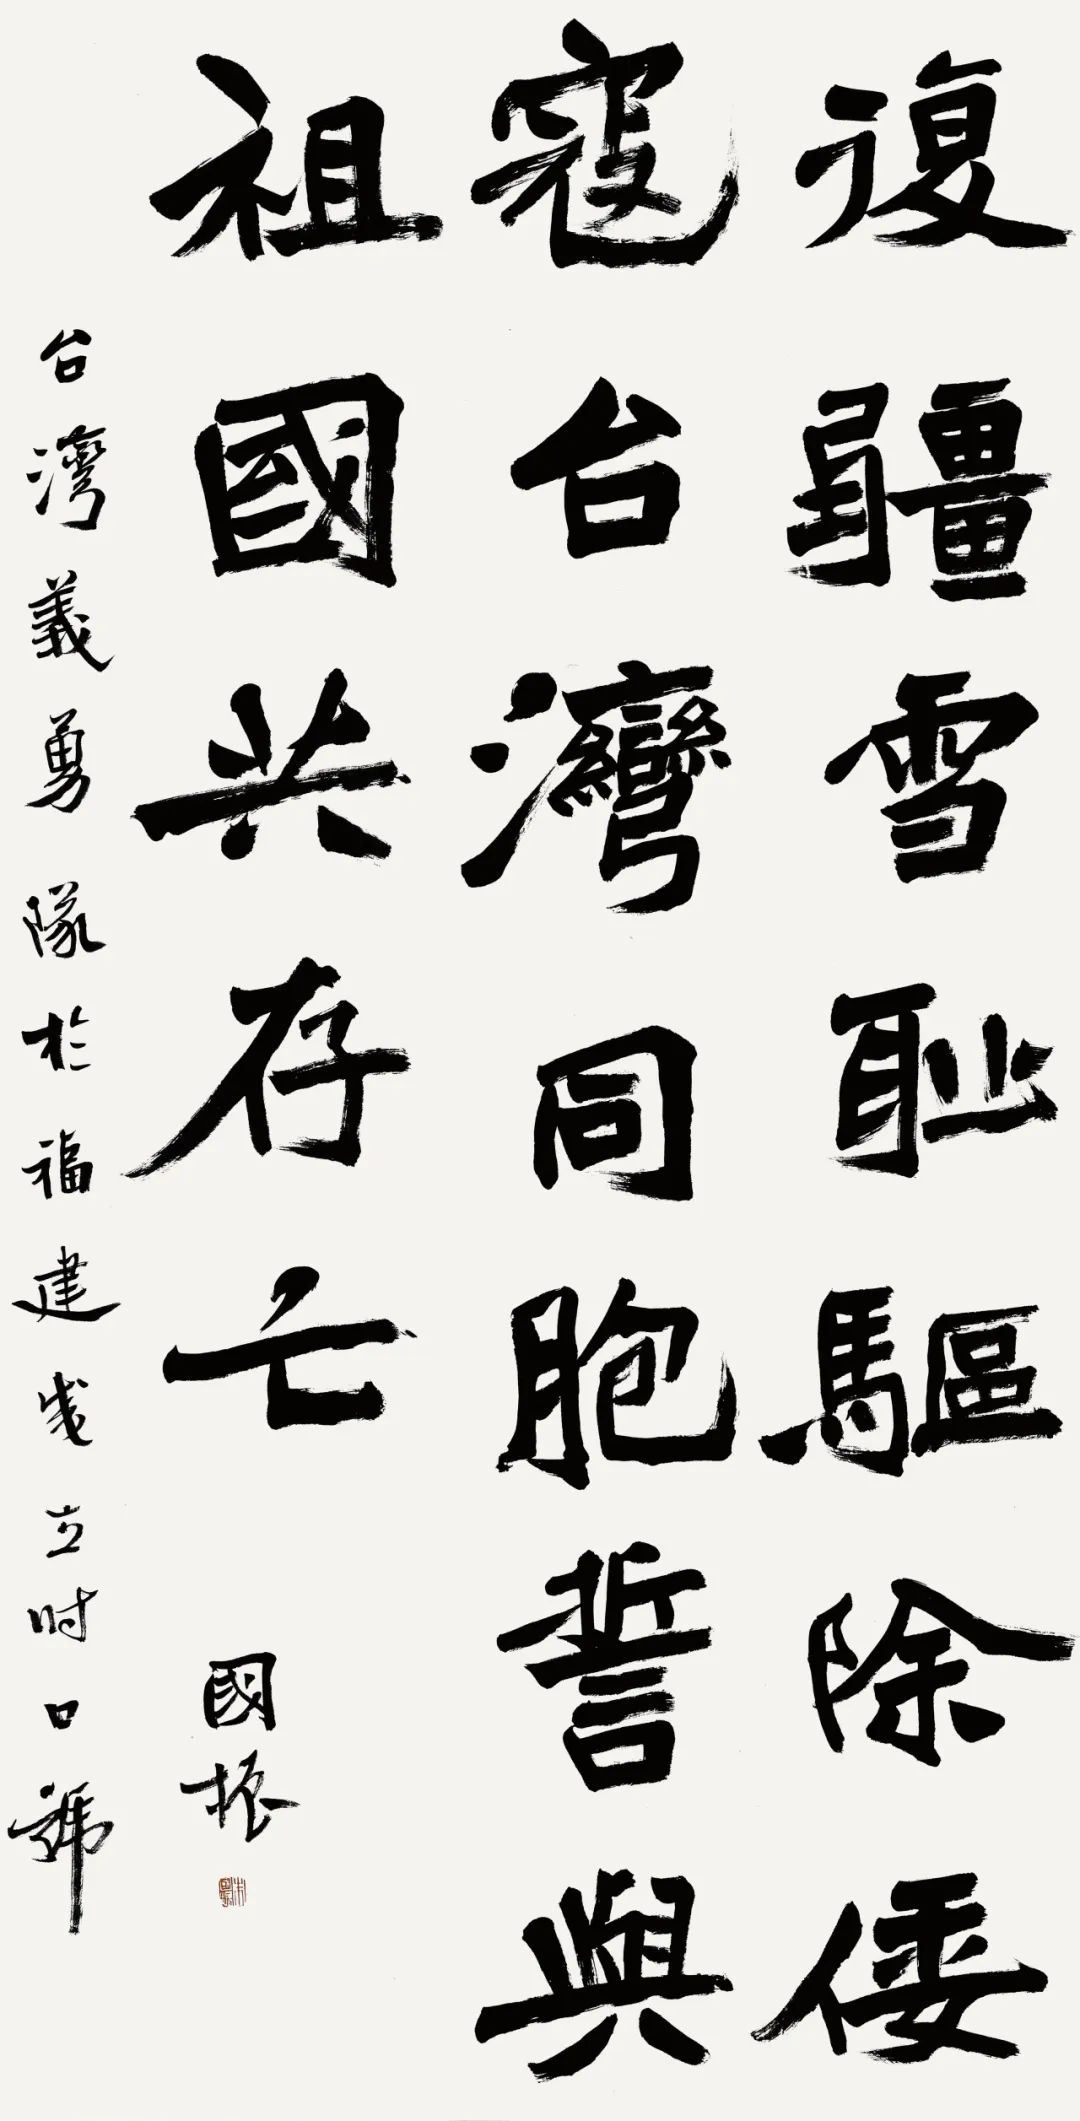 復疆雪耻驅除倭
寇台灣同胞誓與
祖國共存亡
國振
台灣義勇隊於福建成立时口號